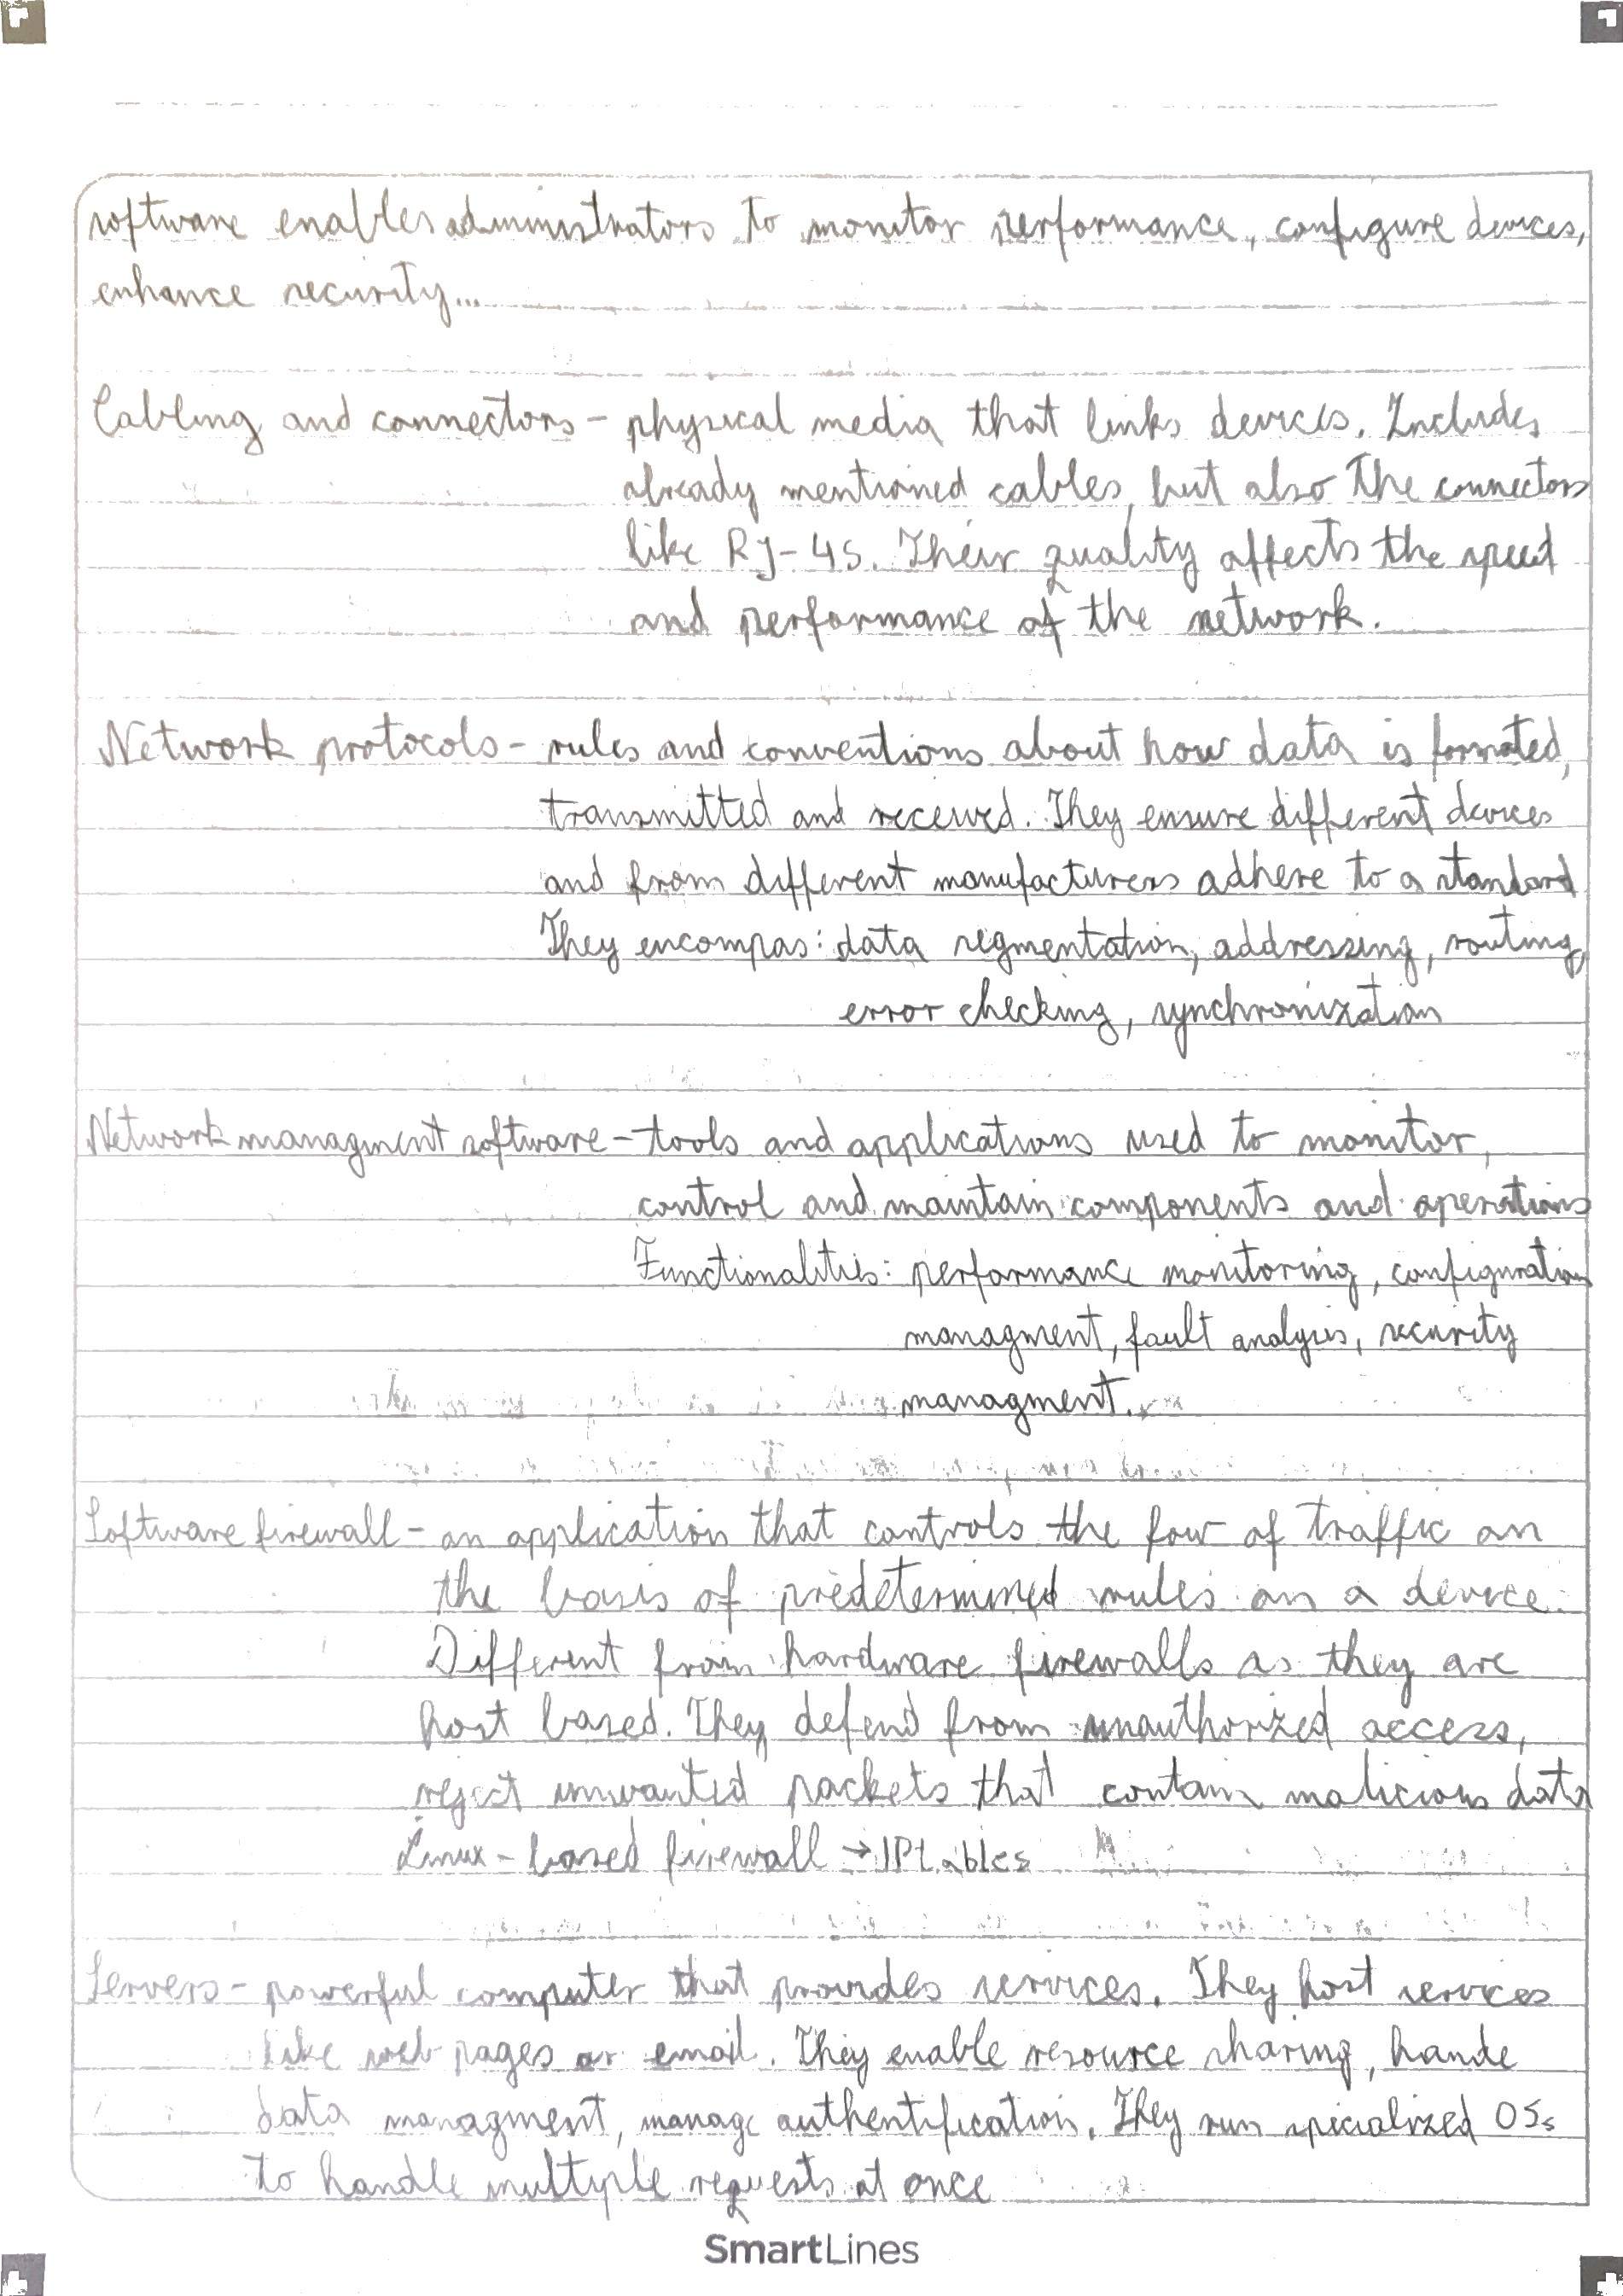 software enables administrators to monitor performance, configure devices,
enhance security...
Cabling and connectors - physical media that links devices. Includes
already mentioned cables, but also the connectors
like RJ-45. Their quality affects the speed
and performance of the network.
Network protocols - rules and conventions about how data is formated,
transmitted and received. They ensure different devices
and from different manufacturers adhere to a standard
They encompas: data segmentation, addressing, routing,
error checking, synchronization
Network managment software - tools and applications used to monitor,
control and maintain components and operations
Functionalities: performance monitoring, configuration
managment, fault analysis, security
managment.
Software firewall - an application that controls the fow of traffic on
the basis of predetermined rules on a device.
Different from hardware firewalls as they are
host based. They defend from unauthorized access,
reject unwanted packets that contain malicious data
Linux-based firewall → IPtables
Servers - powerful computer that provides services. They host services
like web pages or email. They enable resource sharing, hande
data managment, manage authentification. They run specialized OSs
to handle multiple requests at once
SmartLines